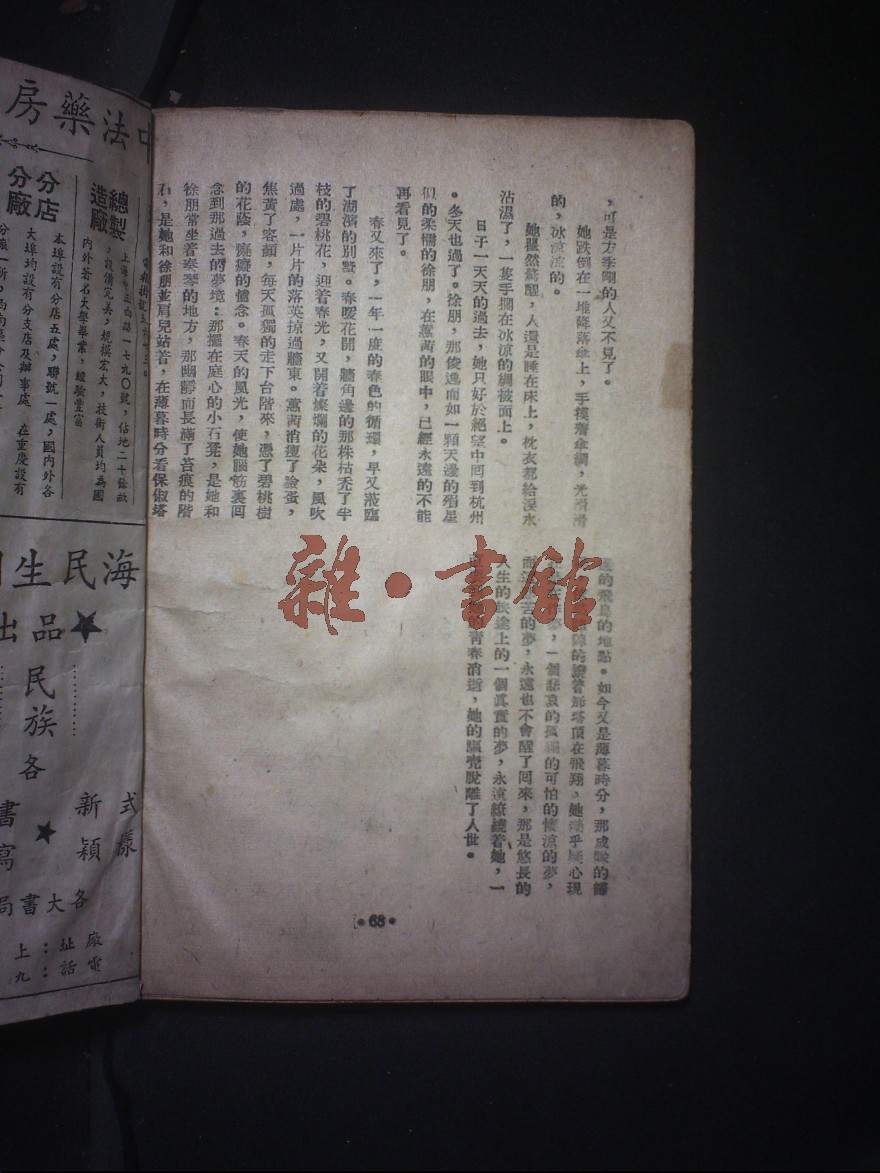 ，可是方季剛的人又不見了。
她跌倒在一堆降落傘上，手摸着傘綢，光滑滑
的，冰涼涼的。
她矍然驚醒，人還是睡在床上，枕衣都給淚水
沾濕了，一隻手擱在冰涼的綢被面上。
日子一天天的過去，她只好於絕望中回到杭州
。冬天也過了。徐朋，那俊逸而如一顆天邊的殞星
似的柔櫚的徐朋，在蕙茜的眼中，已經永遠的不能
再看見了。
春又來了，一年一度的春色的循環，早又蒞臨
了湖濱的別墅。春暖花開，牆角邊的那株枯禿了半
枝的碧桃花，迎着春光，又開着燦爛的花朵，風吹
過處，一片片的落英掠過牆東。蕙茜消瘦了臉蛋，
焦黃了容顏，每天孤獨的走下台階來，憑了碧桃樹
的花蔭，癡癡的憶念。春天的風光，使她腦筋裏回
念到那過去的夢境：那擺在庭心的小石凳，是她和
徐朋常坐着奏琴的地方，那幽靜而長滿了苔痕的階
石，是她和徐朋並肩兒站着，在薄暮時分看保俶塔
的飛鳥的地點。如今又是薄暮時分，那成陣的歸
的繞着那塔頂在飛翔，她幾乎疑心現
夢，一個悲哀的孤獨的可怕的悽涼的夢，
苦的夢，永遠也不會醒了回來，那是悠長的
人生的旅途上的一個真實的夢，永遠繚繞着她，一
的青春消逝，她的軀壳脫離了人世。
•68•
中法藥房
總製造廠
上海
一七九〇號，佔地二十餘畝
，設備完美，規模宏大，技術人員均為國
內外著名大學畢業，經驗豐富
分店
分廠
本埠設有分店五處，聯號一處，國內外各
大埠均設有分支店及辦事處
在重慶設有
海民生
品出
民族
各
新穎
式樣
書寫
各大書局
廠址：上
電話：九
雜·書館